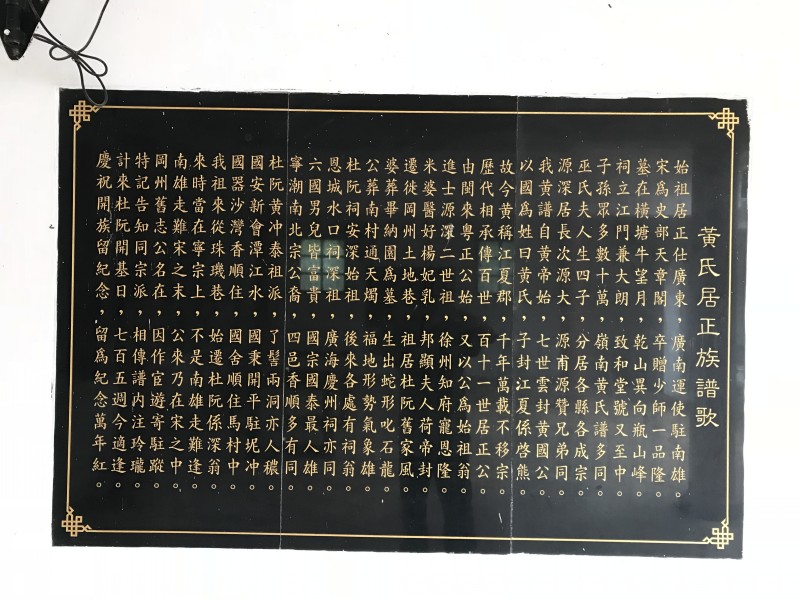 黃氏居正族譜歌
始祖居正仕廣東，廣南運使駐南雄。
宋爲史部天章閣，卒贈少師一品隆。
墓在橫塘牛望月，乾山巽向瓶山峰。
祠立江門兼大朗，致和堂號又至中。
子孫眾多數十萬，嶺南黃氏譜多同。
巫氏夫人生四子，分居各縣各成宗。
源深居長次源大，源甫源贊兄弟同。
我黃譜自黃帝始，七世雲封黃國公。
以國爲姓曰黃氏，子封江夏係啓熊。
故今黃稱江夏郡，千年萬載不移宗。
歷代相承傳百世，百十一世居正公。
由閩來粵正公始，又以公爲始祖翁。
進士源深二世祖，徐州知府寵恩隆。
米婆醫好楊妃乳，邦顯夫人荷帝封。
遷徙岡州土地巷，祖居杜阮舊家風。
婆葬畢納園爲墓，生出蛇形叱石龍。
公葬南村通天燭，福地形勢氣象雄。
杜阮祠安深始祖，後來各處有祠翁。
恩城水口祠深祖，廣海慶州祠亦同。
六國男兒皆富貴，國宗國泰最人雄。
寧潮南北宗公裔，四邑香順多有同。
杜阮黃冲泰祖派，了髻兩洞亦人穠。
國安新會潭江水，國秉開平駐坭冲。
國器沙灣香順住，國舍順住馬村中。
我祖來從珠璣巷，始遷杜阮係深翁。
來時當在寧宗上，不是南雄走難逢。
南雄走難宋之末，公來乃在宋之中。
岡州舊志公名在，因作宦遊寄駐蹤。
特記告知同宗派，相傳譜内注玲瓏。
計來杜阮開基日，七百五週今適逢。
慶祝開族留紀念，留爲紀念萬年紅。